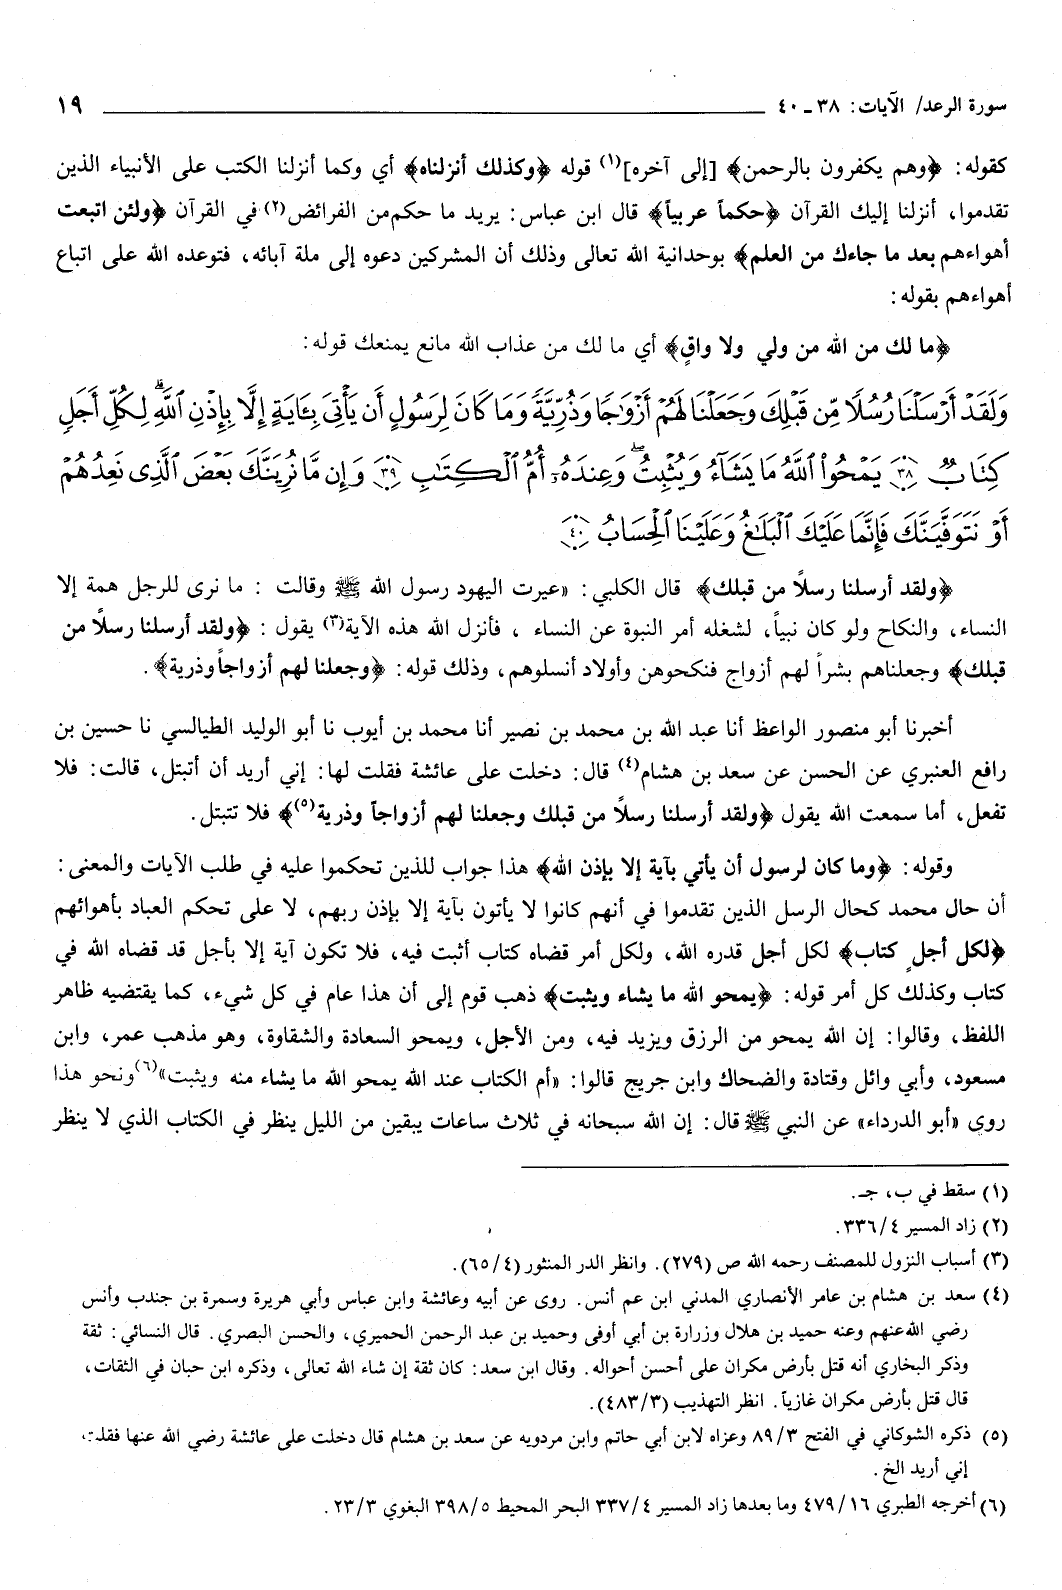 سورة الرعد/ الآيات: ٣٨ ـ ٤٠ ١٩
كقوله: ﴿وهم يكفرون بالرحمن﴾ [إلى آخره](١) قوله ﴿وكذلك أنزلناه﴾ أي وكما أنزلنا الكتب على الأنبياء الذين
تقدموا، أنزلنا إليك القرآن ﴿حكماً عربياً﴾ قال ابن عباس: يريد ما حكم من الفرائض(٢) في القرآن ﴿ولئن اتبعت
أهواءهم بعد ما جاءك من العلم﴾ بوحدانية الله تعالى وذلك أن المشركين دعوه إلى ملة آبائه، فتوعده الله على اتباع
أهواءهم بقوله:
﴿ما لك من الله من ولي ولا واقٍ﴾ أي ما لك من عذاب الله مانع يمنعك قوله:
وَلَقَدْ أَرْسَلْنَا رُسُلًا مِّن قَبْلِكَ وَجَعَلْنَا لَهُمْ أَزْوَٰجًا وَذُرِّيَّةً وَمَا كَانَ لِرَسُولٍ أَن يَأْتِيَ بِـَٔايَةٍ إِلَّا بِإِذْنِ ٱللَّهِۗ لِكُلِّ أَجَلٍ
كِتَابٌ ﴿٣٨﴾ يَمْحُوا۟ ٱللَّهُ مَا يَشَآءُ وَيُثْبِتُۖ وَعِندَهُۥٓ أُمُّ ٱلْكِتَٰبِ ﴿٣٩﴾ وَإِن مَّا نُرِيَنَّكَ بَعْضَ ٱلَّذِى نَعِدُهُمْ
أَوْ نَتَوَفَّيَنَّكَ فَإِنَّمَا عَلَيْكَ ٱلْبَلَٰغُ وَعَلَيْنَا ٱلْحِسَابُ ﴿٤٠﴾
﴿ولقد أرسلنا رسلاً من قبلك﴾ قال الكلبي: «عيرت اليهود رسول الله ﷺ وقالت : ما نرى للرجل همة إلا
النساء، والنكاح ولو كان نبياً، لشغله أمر النبوة عن النساء ، فأنزل الله هذه الآية(٣) يقول : ﴿ولقد أرسلنا رسلاً من
قبلك﴾ وجعلناهم بشراً لهم أزواج فنكحوهن وأولاد أنسلوهم، وذلك قوله: ﴿وجعلنا لهم أزواجاً وذرية﴾.
أخبرنا أبو منصور الواعظ أنا عبد الله بن محمد بن نصير أنا محمد بن أيوب نا أبو الوليد الطيالسي نا حسين بن
رافع العنبري عن الحسن عن سعد بن هشام(٤) قال: دخلت على عائشة فقلت لها: إني أريد أن أتبتل، قالت: فلا
تفعل، أما سمعت الله يقول ﴿ولقد أرسلنا رسلاً من قبلك وجعلنا لهم أزواجاً وذرية(٥)﴾ فلا تتبتل.
وقوله: ﴿وما كان لرسول أن يأتي بآية إلا بإذن الله﴾ هذا جواب للذين تحكموا عليه في طلب الآيات والمعنى:
أن حال محمد كحال الرسل الذين تقدموا في أنهم كانوا لا يأتون بآية إلا بإذن ربهم، لا على تحكم العباد بأهوائهم
﴿لكل أجلٍ كتاب﴾ لكل أجل قدره الله، ولكل أمر قضاه كتاب أثبت فيه، فلا تكون آية إلا بأجل قد قضاه الله في
كتاب وكذلك كل أمر قوله: ﴿يمحو الله ما يشاء ويثبت﴾ ذهب قوم إلى أن هذا عام في كل شيء، كما يقتضيه ظاهر
اللفظ، وقالوا: إن الله يمحو من الرزق ويزيد فيه، ومن الأجل، ويمحو السعادة والشقاوة، وهو مذهب عمر، وابن
مسعود، وأبي وائل وقتادة والضحاك وابن جريج قالوا: «أم الكتاب عند الله يمحو الله ما يشاء منه ويثبت»(٦) ونحو هذا
روي «أبو الدرداء» عن النبي ﷺ قال: إن الله سبحانه في ثلاث ساعات يبقين من الليل ينظر في الكتاب الذي لا ينظر
(١) سقط في ب، جـ.
(٢) زاد المسير ٣٣٦/٤.
(٣) أسباب النزول للمصنف رحمه الله ص (٢٧٩). وانظر الدر المنثور (٦٥/٤).
(٤) سعد بن هشام بن عامر الأنصاري المدني ابن عم أنس. روى عن أبيه وعائشة وابن عباس وأبي هريرة وسمرة بن جندب وأنس
رضي الله عنهم وعنه حميد بن هلال وزرارة بن أبي أوفى وحميد بن عبد الرحمن الحميري، والحسن البصري. قال النسائي: ثقة
وذكر البخاري أنه قتل بأرض مكران على أحسن أحواله. وقال ابن سعد: كان ثقة إن شاء الله تعالى، وذكره ابن حبان في الثقات،
قال قتل بأرض مكران غازياً. انظر التهذيب (٤٨٣/٣).
(٥) ذكره الشوكاني في الفتح ٨٩/٣ وعزاه لابن أبي حاتم وابن مردويه عن سعد بن هشام قال دخلت على عائشة رضي الله عنها فقلت،
إني أريد الخ.
(٦) أخرجه الطبري ٤٧٩/١٦ وما بعدها زاد المسير ٣٣٧/٤ البحر المحيط ٣٩٨/٥ البغوي ٢٣/٣.